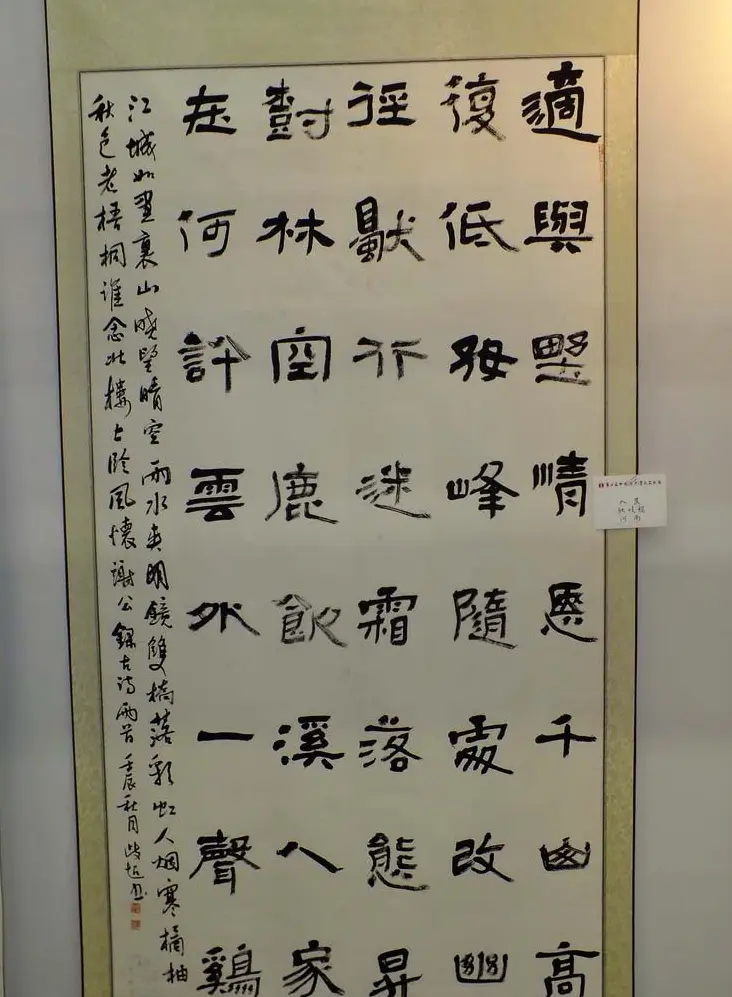 適與野情愜千山高
復低好峰隨處改幽
徑獸行迷霜落態昇
樹林空鹿飲溪人家
在何許雲外一聲鷄
江城如畫裏山曉望晴空兩水夾明鏡雙橋落彩虹人烟寒橘柚
秋色老梧桐誰念北樓上臨風懷謝公錄古詩兩首壬辰秋月書
入展
河南